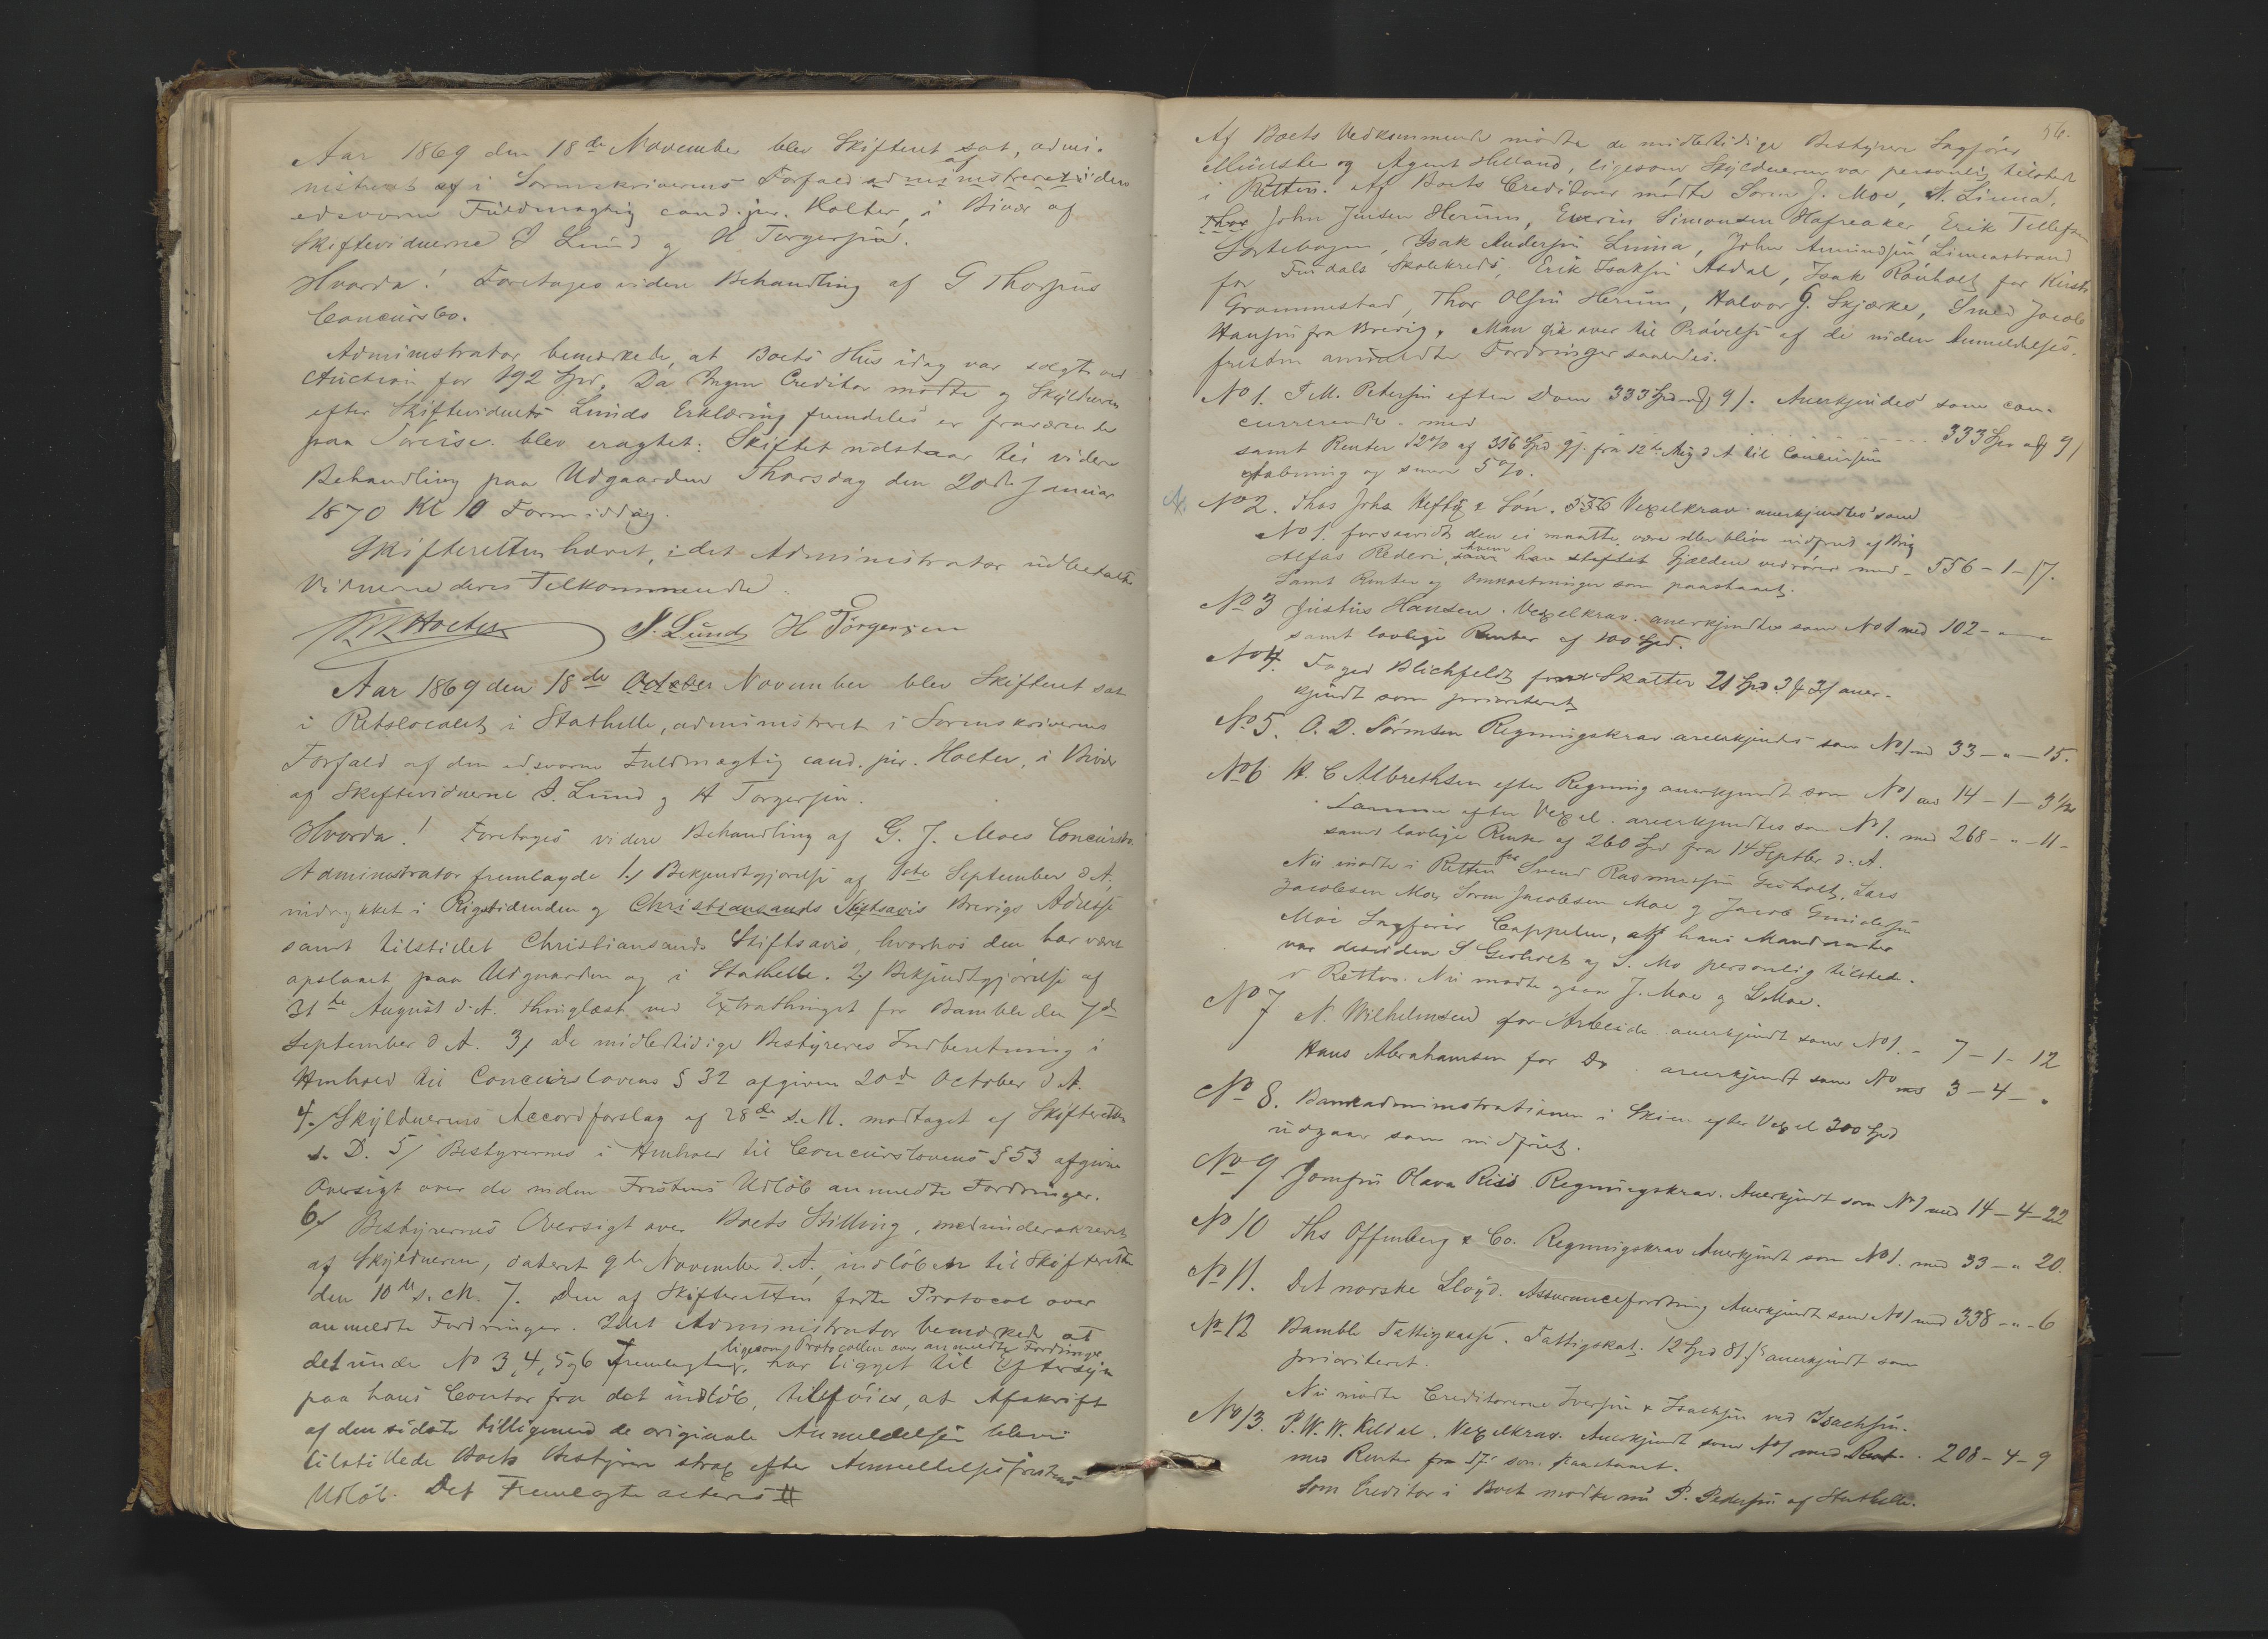 Aar 1869 den 18de November blev Skifteret sat, admi-
nistreret af i Sorenskriverens Forfald administreret af den
edsvorne Fuldmægtig cand. jur. Holter, i Bivær af
Skiftevidnerne I Lund og H Torgersen.
Hvorda! Foretages videre Behandling af G Thorsens
Concursbo.
Administrator bemærkede, at Boets Hus idag var solgt ved
Auction for 192 Spd. Da Ingen Creditor mødte og Skyldneren
efter Skiftevidnets Lunds Erklæring fremdeles er fraværende
paa Søreise blev eragtet: Skiftet udstaar til videre
Behandling paa Udgaarden Thorsdag den 20de Januar
1870 Kl 10 Formiddag.
Skifteretten hævet, idet Administrator udbetalte
Vidnerne deres Tilkommende.
Holter I. Lund H Torgersen
Aar 1869 den 18de October November blev Skifteret sat
i Retslocalet i Stathelle, administreret i Sorenskriverens
Forfald af den edsvorne Fuldmægtig cand. jur. Holter, i Bivær
af Skiftevidnerne I. Lund og H Torgersen.
Hvorda! Foretages videre Behandling af G. J. Moes Concursbo
Administrator fremlagde 1/ Bekjendtgjørelse af 1ste September d. A,
indrykket i Rigstidenden og Christiansands Stiftsavis Brevigs Adresse
samt tilstillet Christiansands Stiftsavis, hvorhos den har været
opslaaet paa Udgaarden og i Stathelle. 2/ Bekjendtgjørelse af
31te August d. A. thinglæst ved Extrathinget for Bamble den 7de
September d A. 3/ De midlertidige Bestyreres Indberetning i
Henhold til Concurslovens § 32 afgiven 20de October d A.
4./ Skyldnerens Accordforslag af 28de s. M. modtaget af Skifteretten
s. D. 5/ Bestyrernes i Henhold til Concurslovens § 53 afgivne
Oversigt over de inden Fristens Udløb anmeldte Fordringer.
6/ Bestyrernes Oversigt over Boets Stilling, medunderskrevet
af Skyldneren, dateret 9de November d. A., indløben til Skifteretten
den 10de s. M. 7. Den af Skifteretten førte Protocol over
anmeldte Fordringer. Idet Administrator bemærkede at
ligesom Protocollen over anmeldte Fordringer
det under No 3, 4, 5 og 6 Fremlagte, har ligget til Eftersyn
paa hans Contor fra det indløb, tilføies, at Afskrift
af den sidste tilligemed de originale Anmeldelser bleve
tilstillede Boets Bestyrere strax efter Anmeldelsesfristens
Udløb. Det Fremlagte acteres
56.
Af Boets Vedkommende mødte de midlertidige Bestyrere Sagfører
Münster og Agent Helland, ligesom Skyldneren var personlig tilstede
i Retten. Af Boets Creditorer mødte Søren J. Moe, N. Linna,
Thor John Jensen Herum, Everin Simonsen Hafreaker, Erik Tellefsen
Sortebogen, Isak Andersen Linna, John Amundsen Linnastrand
for Findals Skolekreds, Erik Isaksen Asdal, Isak Rønholt for Kirsti
Grommestad, Thor Olsen Herum, Halvor G. Skjærke, Smed Jacob
Hansen fra Brevig. Man gik over til Prøvelse af de inden Anmeldelses-
fristen anmeldte Fordringer saaledes.
No 1. P M. Petersen efter Dom 333 Spd 9/. Anerkjendes som con-
currerende med 333 Spd 9/
samt Renter 12% af 356 Spd 9/. fra 12te Aug d A til Concursens
Aabning og siden 5%.
No 2. Thos Joh. Heftye & Søn. 556 Vexelkrav anerkjendtes som
No 1. forsaavidt den ei maatte være eller blive indfriet af Brig
Alfas Rederi, hvem Gjælden vedrører med - 556 - 1 - 17.
Samt Renter og Omkostninger som paastaaet.
No 3 Justus Hansen. Vexelkrav. anerkjendtes som No 1 med 102 - "
samt lovlige Renter af 100 Spd.
No 4. Foged Blichfeldt for Skatter 21 Spd 3 # 3/ aner-
kjendt som prioriteret
No 5. O. D. Sørensen Regningskrav anerkjendes som No 1 med 33 - " - 15.
No 6 H. C Albrethsen efter Regning anerkjendt som No 1 med 14 - 1 - 3 1/2
Samme efter Vexel. anerkjendtes som No 1. med 268 - " - 11 -
samt lovlige Renter af 260 Spd fra 14 Septbr d. A.
Nu mødte i Retten for Svend Rasmussen Gisholt, Lars
Jacobsen Moe, Søren Jacobsen Moe og Jacob Gundersen
Moe Sagfører Cappelen, af hans Mandanter
var desuden S Gisholt og S. Mo personlig tilstede
i Retten. Nu mødte ogsaa J. Moe og L Moe.
No 7 N. Wilhelmsen for Arbeide anerkjendt som No 1. - 7 - 1 - 12
Hans Abrahamsen for Do anerkjendt som No med 3 - 4 - "
No 8. Bankadministrationen i Skien efter Vexel 300 Spd
udgaar som indfriet.
No 9 Jomfru Olava Riis Regningskrav. Anerkjendt som No 1 med 14 - 4 - 22
No 10 Ths Offenberg & Co. Regningskrav Anerkjendt som No 1. med 33 - " 20.
No 11. Det norske Lloyd. Assurancefordring Anerkjendt som No 1 med 338 - " - 6
No 12 Bamble Fattigkasse. Fattigskat. 12 Spd 81/ anerkjendt som
prioriteret.
Nu mødte Creditorerne Iversen & Isachsen ved Isachsen.
No 13. P. W. W. Kildal. Vexelkrav. Anerkjendt som No 1 med Rent.. 208 - 4 - 9
med Renter fra som paastaaet.
Som Creditor i Boet mødte nu P. Pedersen af Stathelle.